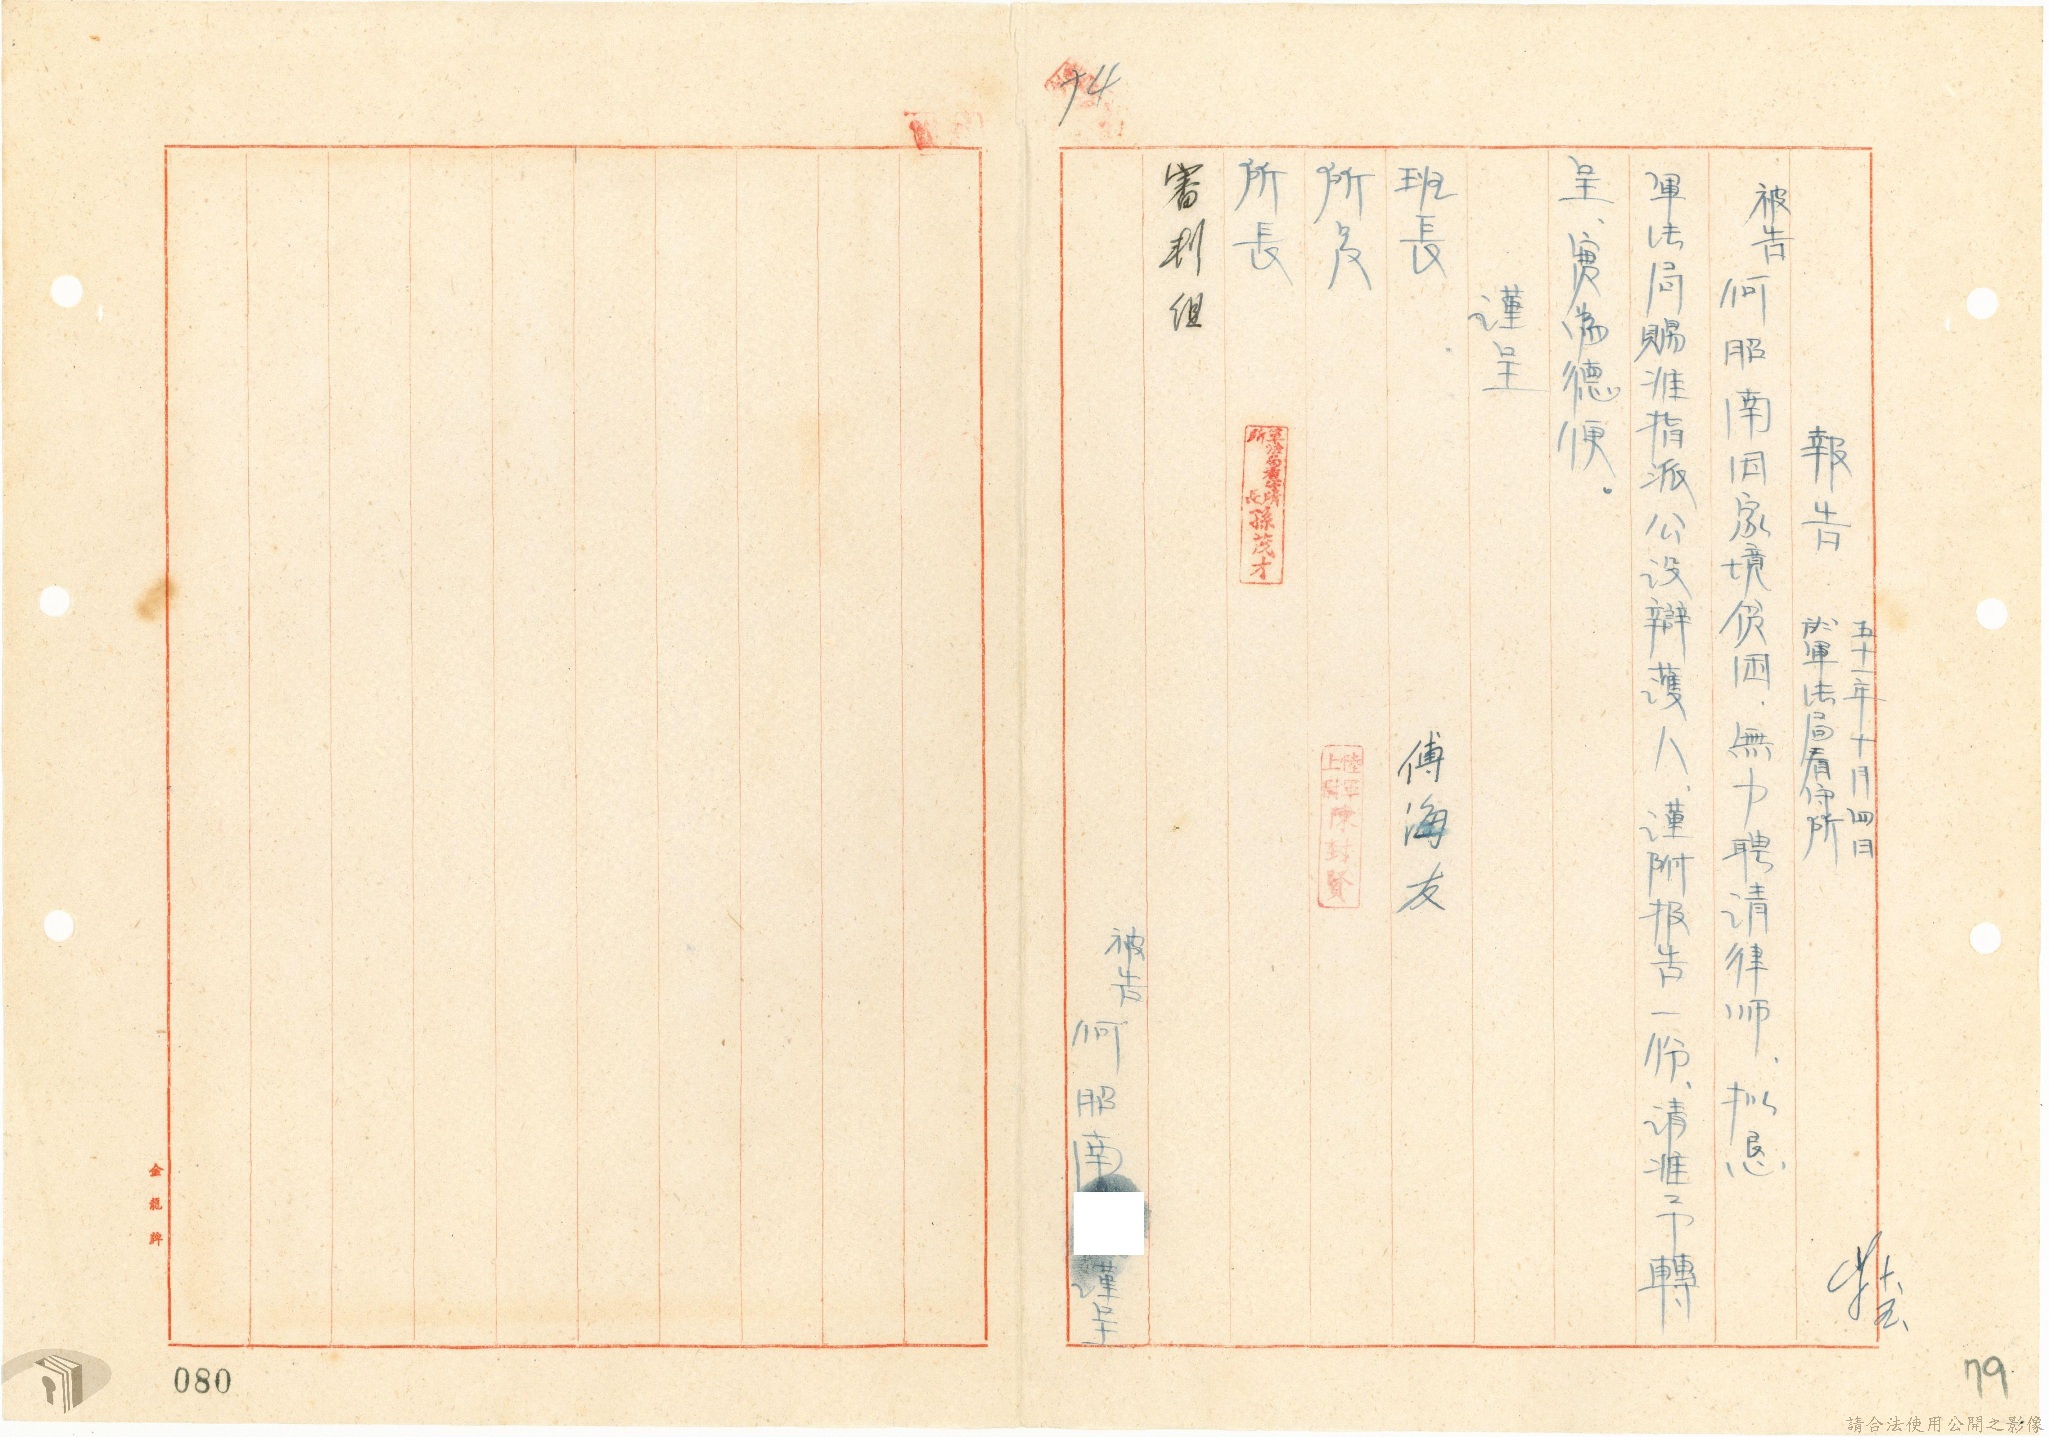 報告
五十一年十月四日
於軍法局看守所
被告何照南因家境貧困、無力聘請律师、擬懇
軍法局賜准指派公設辯護人、謹附报告一份、请准予轉
呈、實為德便。
謹呈
班長 傅海友
所員 陸軍上尉陳封賢
所長 軍法局看守所所長孫茂才
審判組
被告何照南 謹呈
74
79
080
金龍牌
請合法使用公開之影像